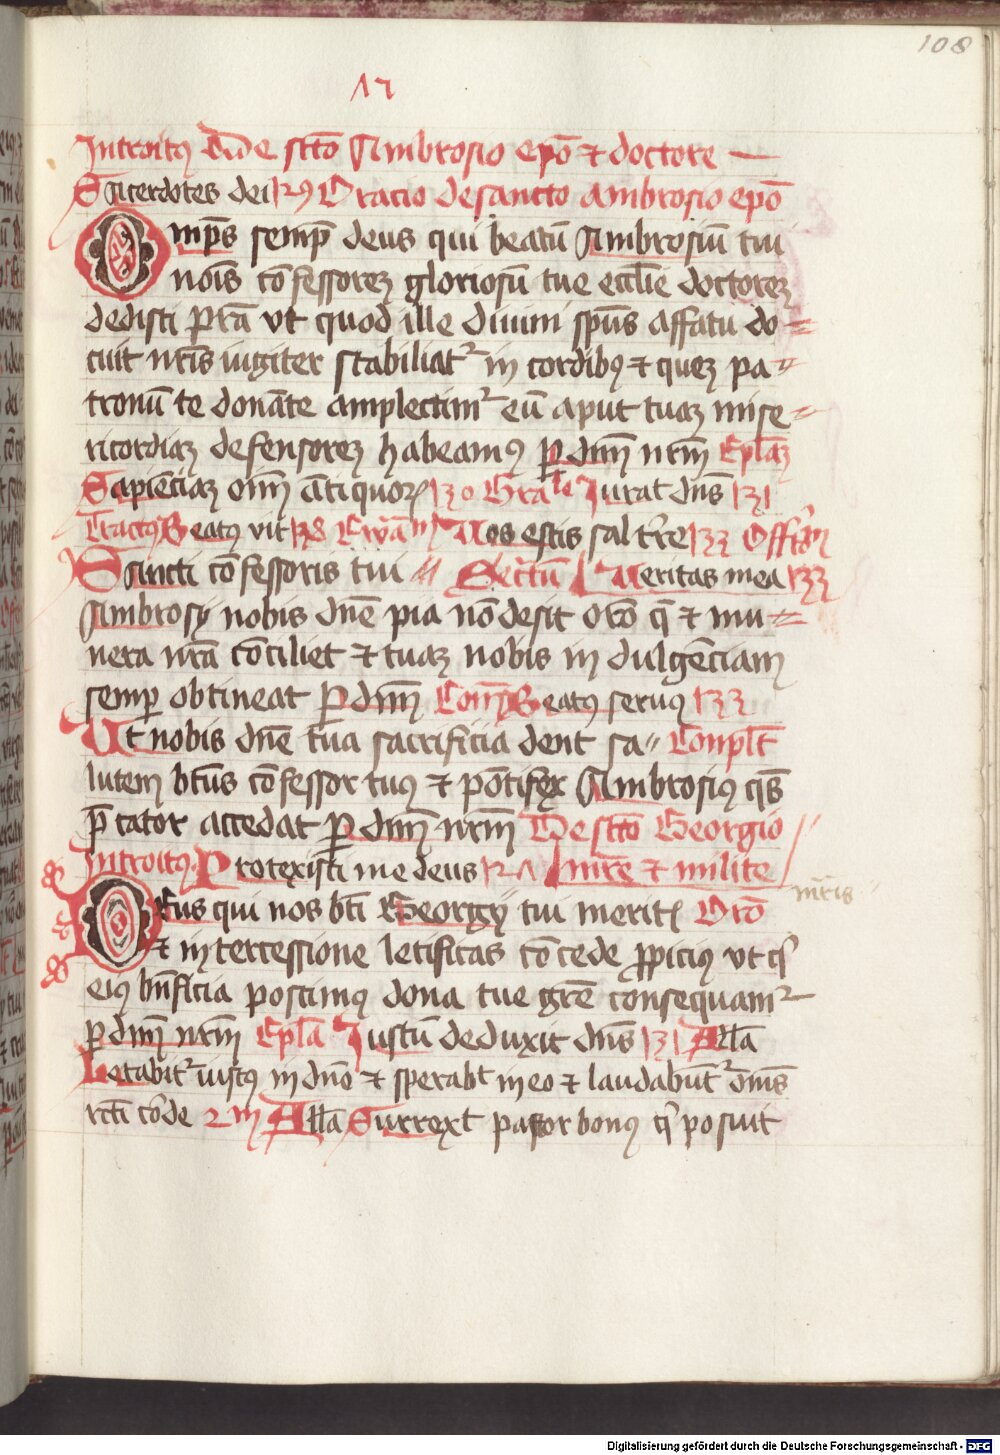 108
17
Introitus Dude scto Ambrosio epo et doctore
Sacerdotes dei 129 Oracio de sancto ambrosio epo
Omps semp deus qui beatu Ambrosiu tui
nois cofessorez gloriosu tue ecclie doctorez
dedisti pram vt quod ille diuini spus affatu do
cuit nris iugiter stabiliat in cordibus et quez pa
tronu te donate amplectimr eu aput tuaz mise
ricordiaz defensorez habeamus p dnm nrm Eplaz
Sapieciaz oim atiquor 130 Grale Iurat dns 131
Tractus Beatus vir Ewam Vos estis sal tre 133
Sancti cofessoris tui Secretu Veritas mea 133
Ambrosy nobis dne pia no desit oro q et mu
nera nra conciliet et tuaz nobis in dulgenciam
semp obtineat p dnm Com Beatus seruus 133
Ut nobis dne tua sacrificia dent sa Conplt
lutem btus cofessor tuus et potifex Ambrosius qs
p cator accedat p dnm nrm De scto Georgio
Introitus Protexisti me deus mre et milite
mris
Deus qui nos bti Georgy tui merit Oro
et intercessione letificas cocede ppicius vt q
eius bnficia poscimus dona tue gre consequamr
p dnm nrm Epla Iustu deduxit dns 131 Alla
Letabitr iustus in dno et sperabt in eo et laudabut oms
rcti corde 2m Alla Surrext pastor bonus q posuit
Digitalisierung gefördert durch die Deutsche Forschungsgemeinschaft - DFG